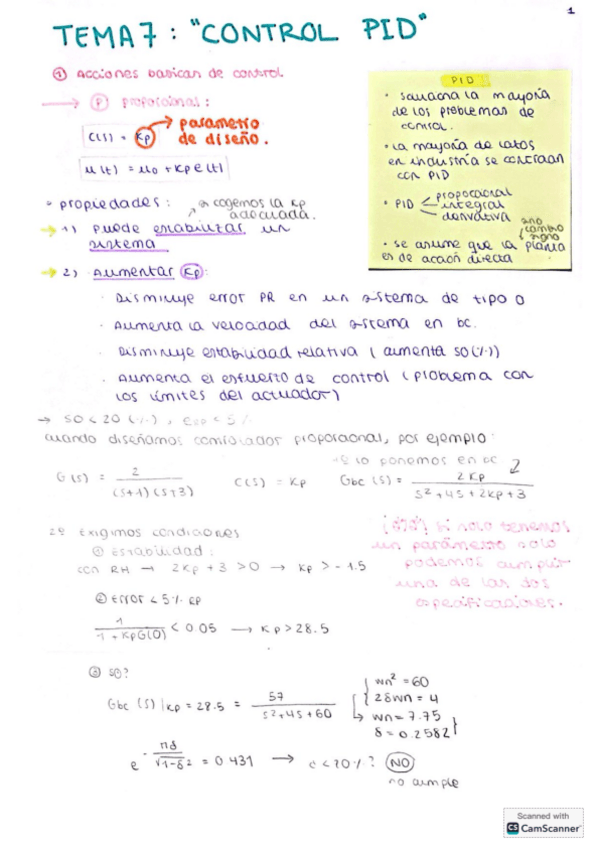 1
TEMA 7: "CONTROL PID"
① Acciones basicas de control
→ Ⓟ proporcional:
C(s) = Kp → parametro de diseño.
u(t) = u0 + Kp e(t)
PID
· soluciona la mayoria
de los problemas de
control.
· La mayoria de lazos
en industria se controlan
con PID
· PID proporcional
integral
derivativa
· se asume que la planta
es de acción directa
ano
cambio
signo
· propiedades:
→ cogemos la Kp
adecuada.
→ 1) Puede estabilizar un
sistema
→ 2) Aumentar Kp:
· Disminuye error PR en un sistema de tipo 0
· Aumenta la velocidad del sistema en bc.
· Disminuye estabilidad relativa (aumenta SO(%))
· Aumenta el esfuerzo de control (problema con
los límites del actuador)
→ SO < 20 (%), erp < 5%
cuando diseñamos controlador proporcional, por ejemplo:
1º lo ponemos en bc
G(s) = 2 / (s+1)(s+3) C(s) = Kp Gbc(s) = 2Kp / s²+4s+2Kp+3
2º Exigimos condiciones
① Estabilidad:
con RH → 2Kp+3 > 0 → Kp > -1.5
si solo tenemos
un parámetro solo
podemos cumplir
una de las dos
especificaciones.
② Error < 5% RP
1 / 1+KpG(0) < 0.05 → Kp > 28.5
③ SO?
Gbc(s)|Kp=28.5 = 57 / s²+4s+60
wn² = 60
2δwn = 4
→ wn = 7.75
δ = 0.2582
e^-πδ/√1-δ² = 0.431 → c < 20%? NO
no cumple
Scanned with
CS CamScanner